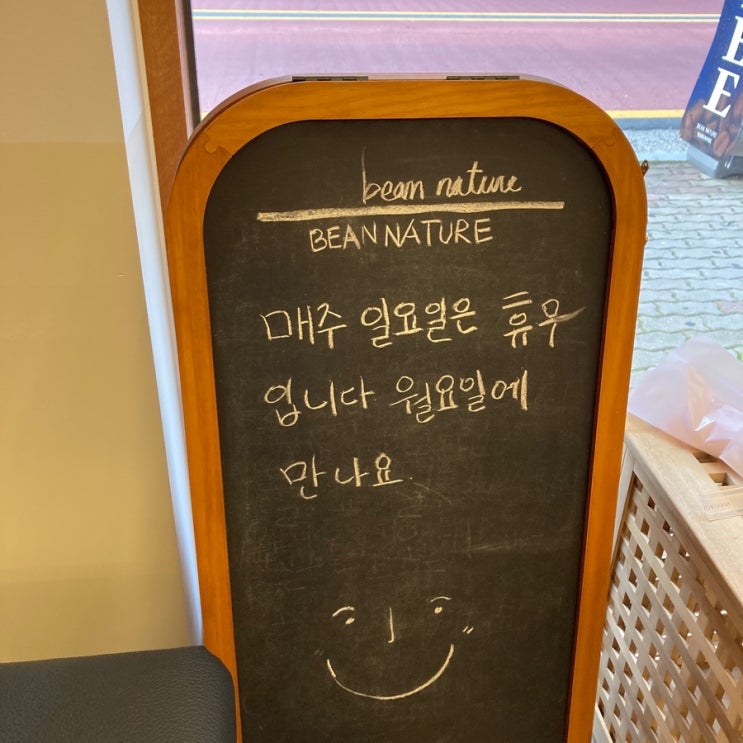 bean nature
BEAN NATURE
매주 일요일은 휴무
입니다 월요일에
만나요.
B
E